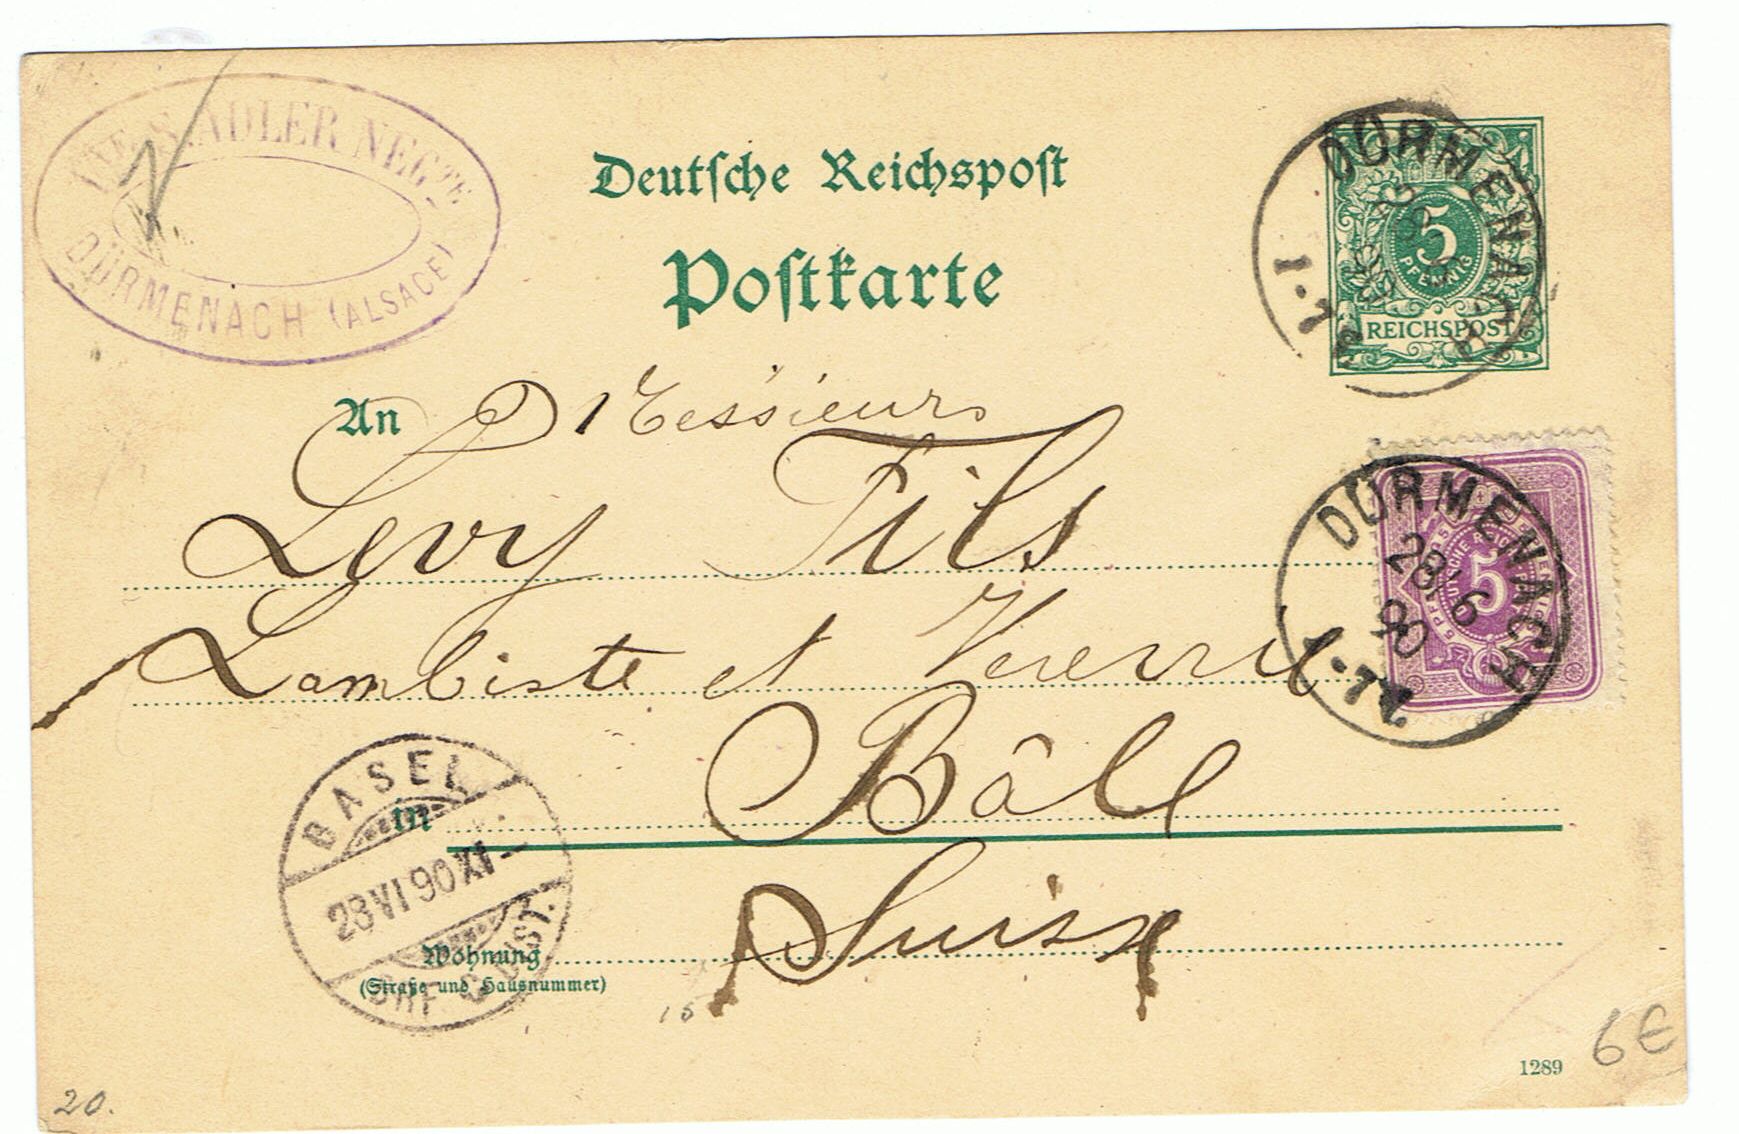 ADLER NEGTE
DÜRMENACH (ALSACE)
Deutsche Reichspost
Postkarte
5
PFENNIG
REICHSPOST
DÜRMENACH
28 6
90
1-7N.
An Messieurs
Levy Fils
Lambiste et
Bâle
Suisse
5
DÜRMENACH
28 6
90
1-7N.
in
BASEL
28 VI 90 XI-
BRF. DIST.
Wohnung
(Straße und Hausnummer)
15
1289
6€
20.